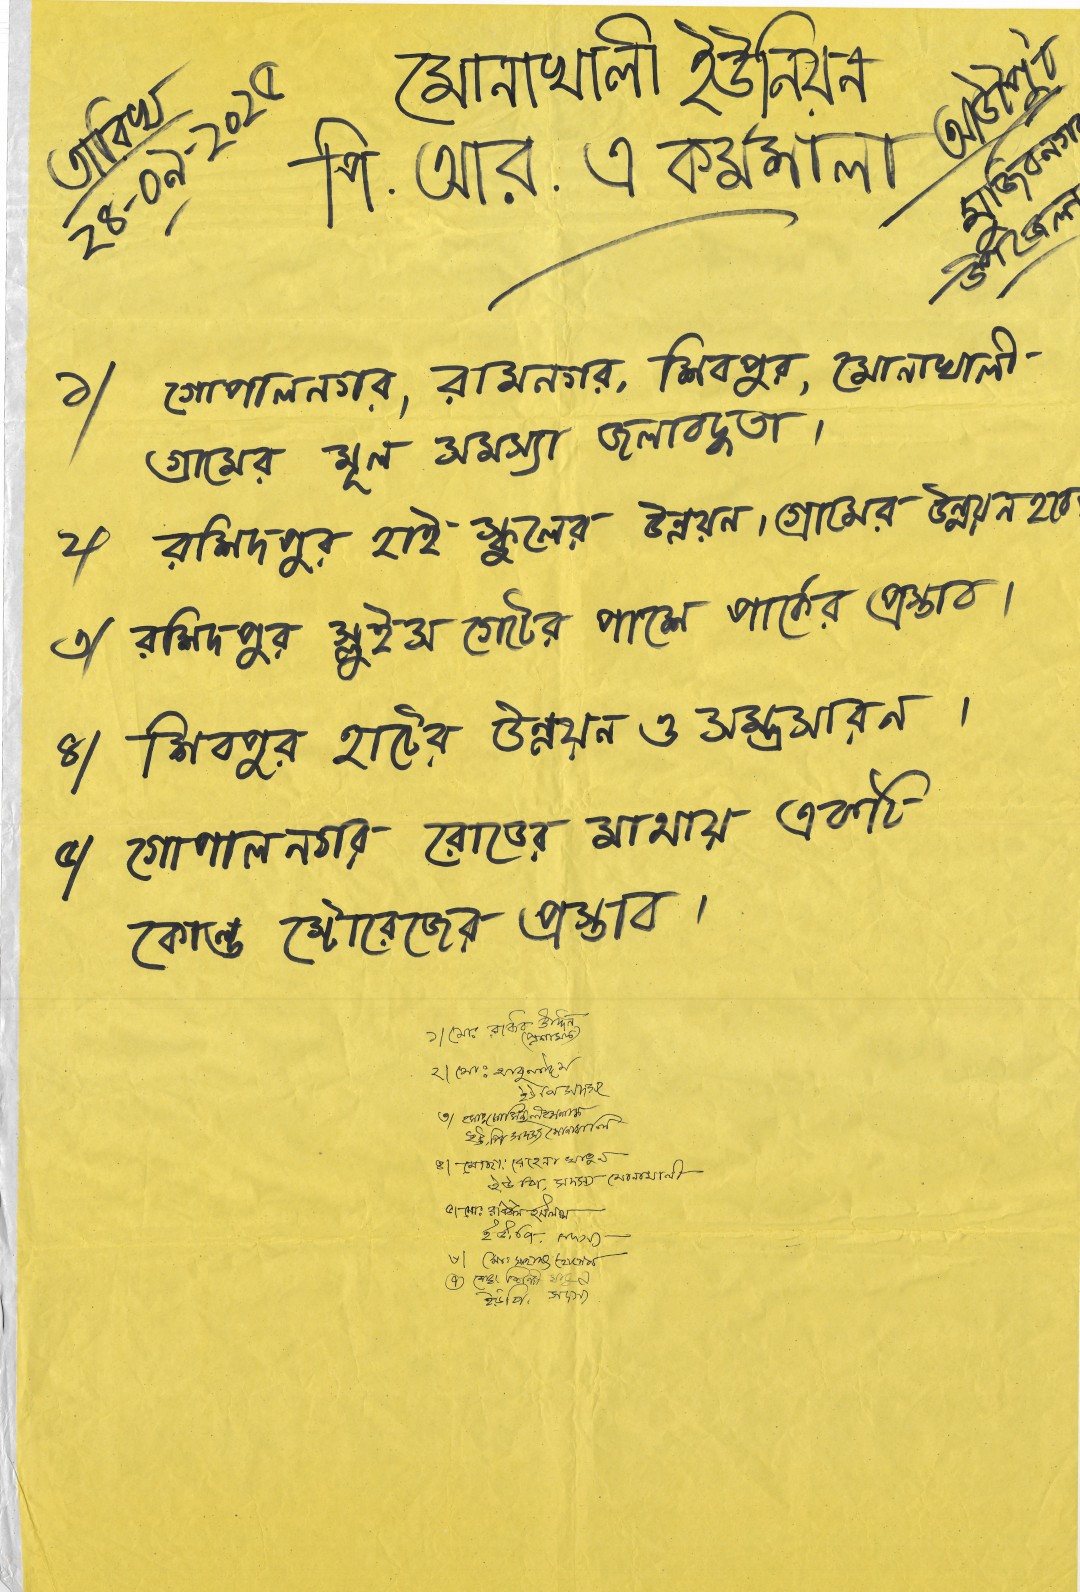 মোনাখালী ইউনিয়ন
পি. আর. এ কর্মশালা
তারিখ
২৪-০৯-২০২৫
মুজিবনগর
উপজেলা
১/ গোপালনগর, রামনগর, শিবপুর, মোনাখালী
গ্রামের মূল সমস্যা জলাবদ্ধতা।
২/ রশিদপুর হাই স্কুলের উন্নয়ন। গ্রামের উন্নয়ন হবে
৩/ রশিদপুর স্লুইস গেটের পাশে পার্কের প্রস্তাব।
৪/ শিবপুর হাটের উন্নয়ন ও সম্প্রসারন।
৫/ গোপালনগর রোডের মাথায় একটি
কোল্ড স্টোরেজের প্রস্তাব।
১/ মোঃ রকিব উদ্দিন
২/ মোঃ
ইউ পি সদস্য
৩/
ইউ,পি সদস্য মোনাখালি
৪/ মোছাঃ রেহেনা খাতুন
ইউ পি, সদস্য মোনাখালী
৫/ মোঃ রকিবুল ইসলাম
ইউ,পি. সদস্য
৬/ মোঃ
৭
ইউ পি. সদস্য